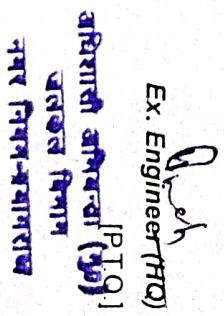 Ex. Engineer (HQ)
[P.T.O.]
अधिशासी अभियन्ता (मु०)
जलकल विभाग
नगर निगम-प्रयागराज